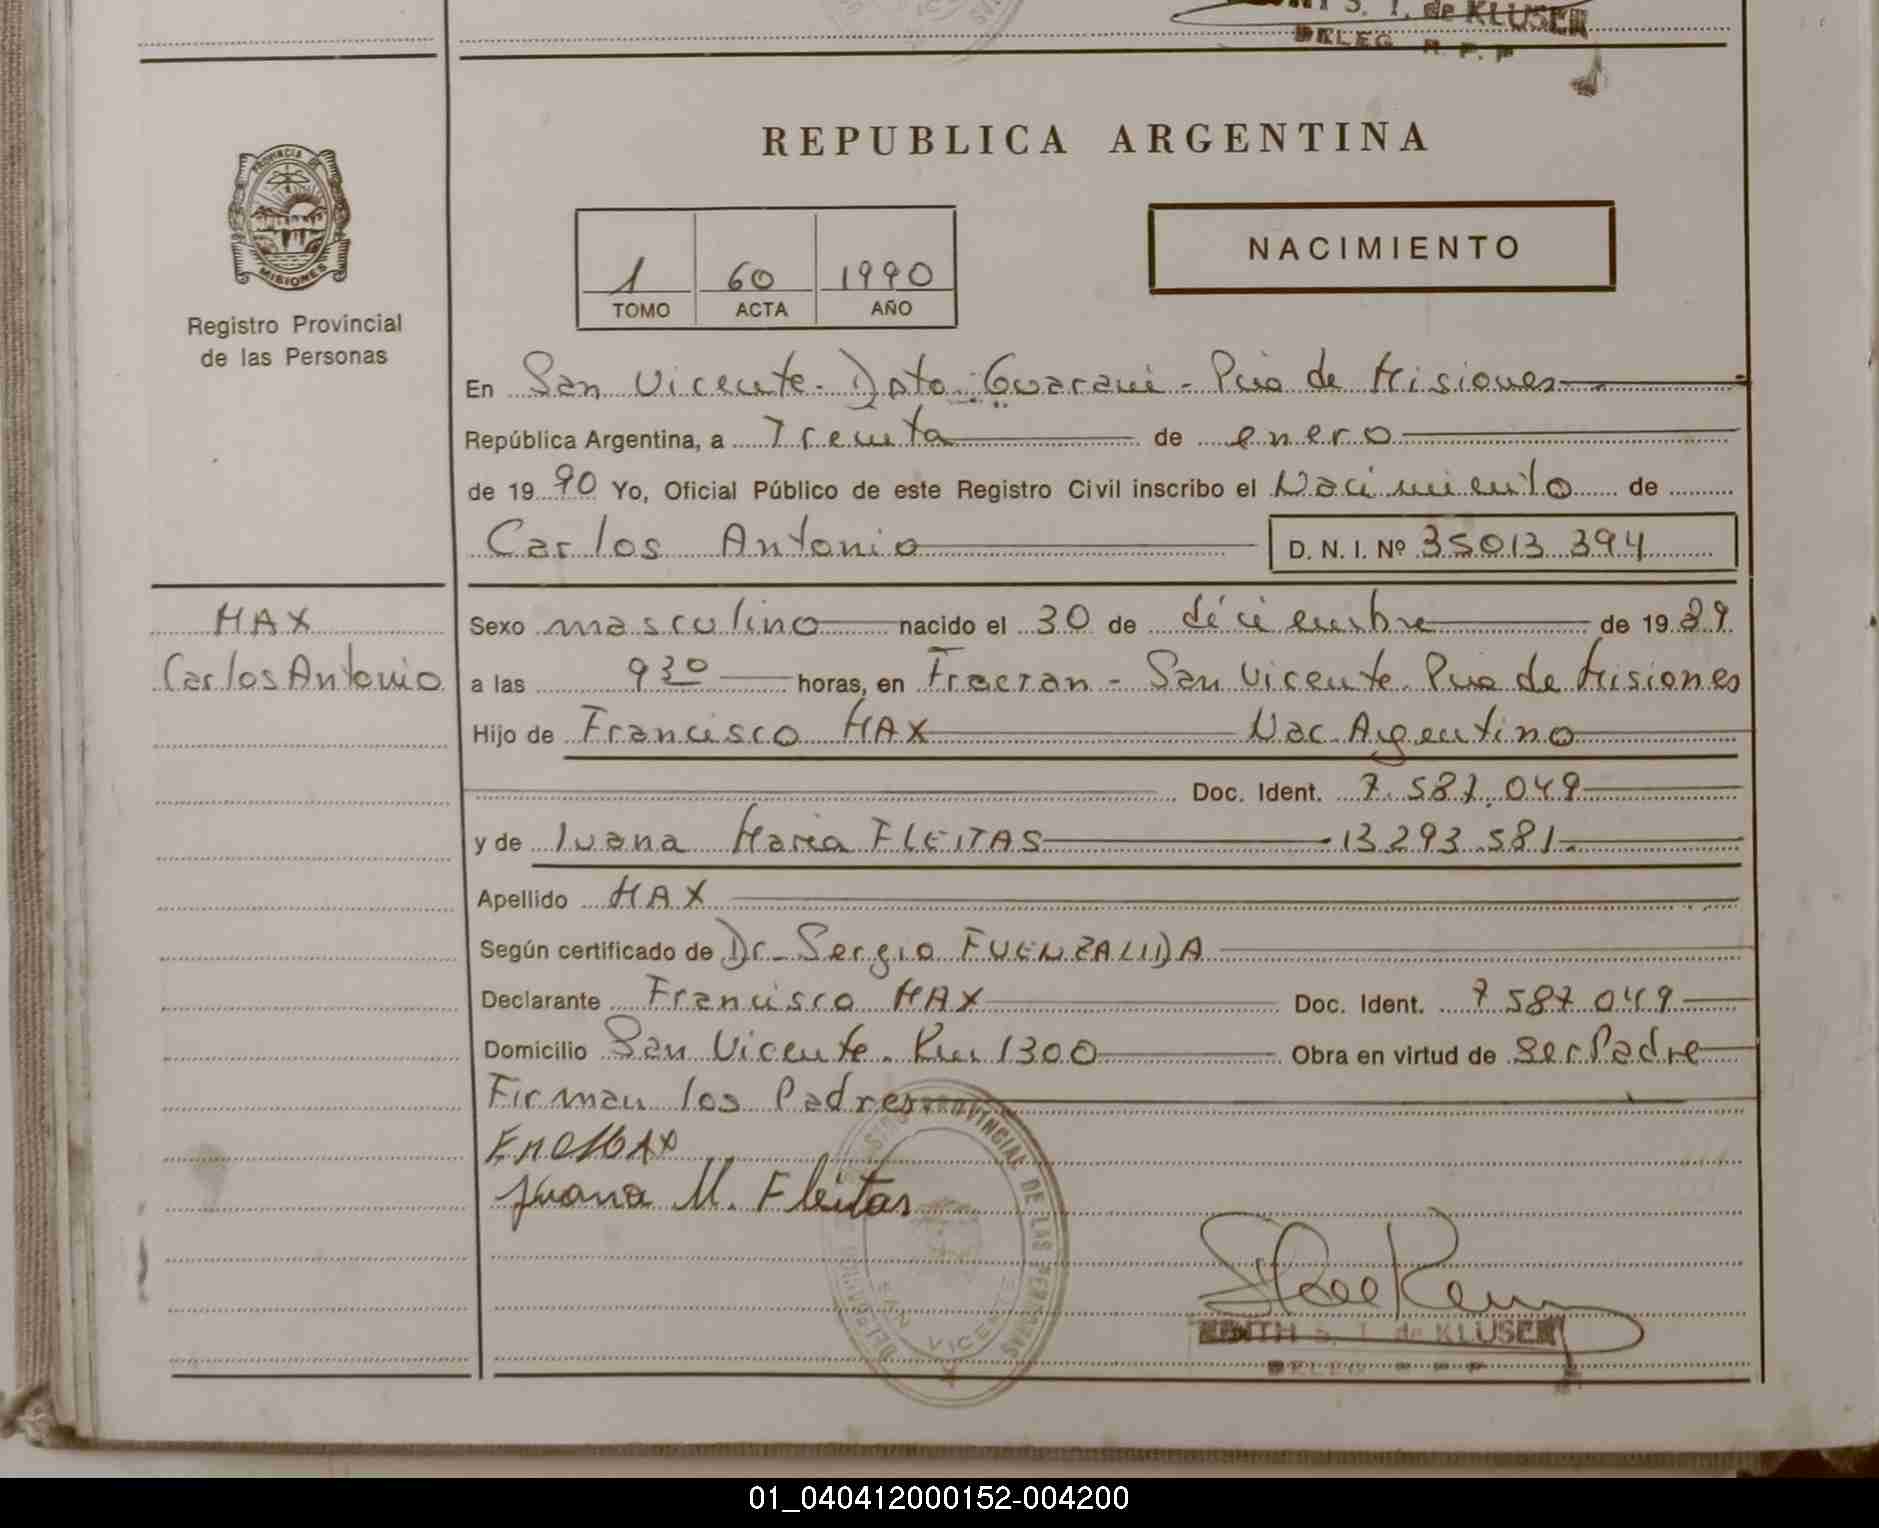 S. T. de KLUSER
DELEG R. P. P
REPUBLICA ARGENTINA
PROVINCIA DE
MISIONES
Registro Provincial
de las Personas
1 60 1990
TOMO ACTA AÑO
NACIMIENTO
En San Vicente. Dpto. Guaraní - Pcia de Misiones
República Argentina, a Treinta de enero
de 19 90 Yo, Oficial Público de este Registro Civil inscribo el Nacimiento de
Carlos Antonio D. N. I. Nº 35013 394
MAX
Carlos Antonio
Sexo masculino nacido el 30 de diciembre de 19 89
a las 9 30 horas, en Fracran - San Vicente. Pcia de Misiones
Hijo de Francisco MAX Nac. Argentino
Doc. Ident. 7.587.049
y de Juana Maria FLEITAS 13.293.581
Apellido MAX
Según certificado de Dr. Sergio FUENZALIDA
Declarante Francisco MAX Doc. Ident. 7.587.049
Domicilio San Vicente. Km 1300 Obra en virtud de ser Padre
Firman los Padres
Juana M. Fleitas
PROVINCIAL DE LAS PERSONAS
SAN VICENTE
EDITH S. T. de KLUSER
DELEG R P P
01_040412000152-004200